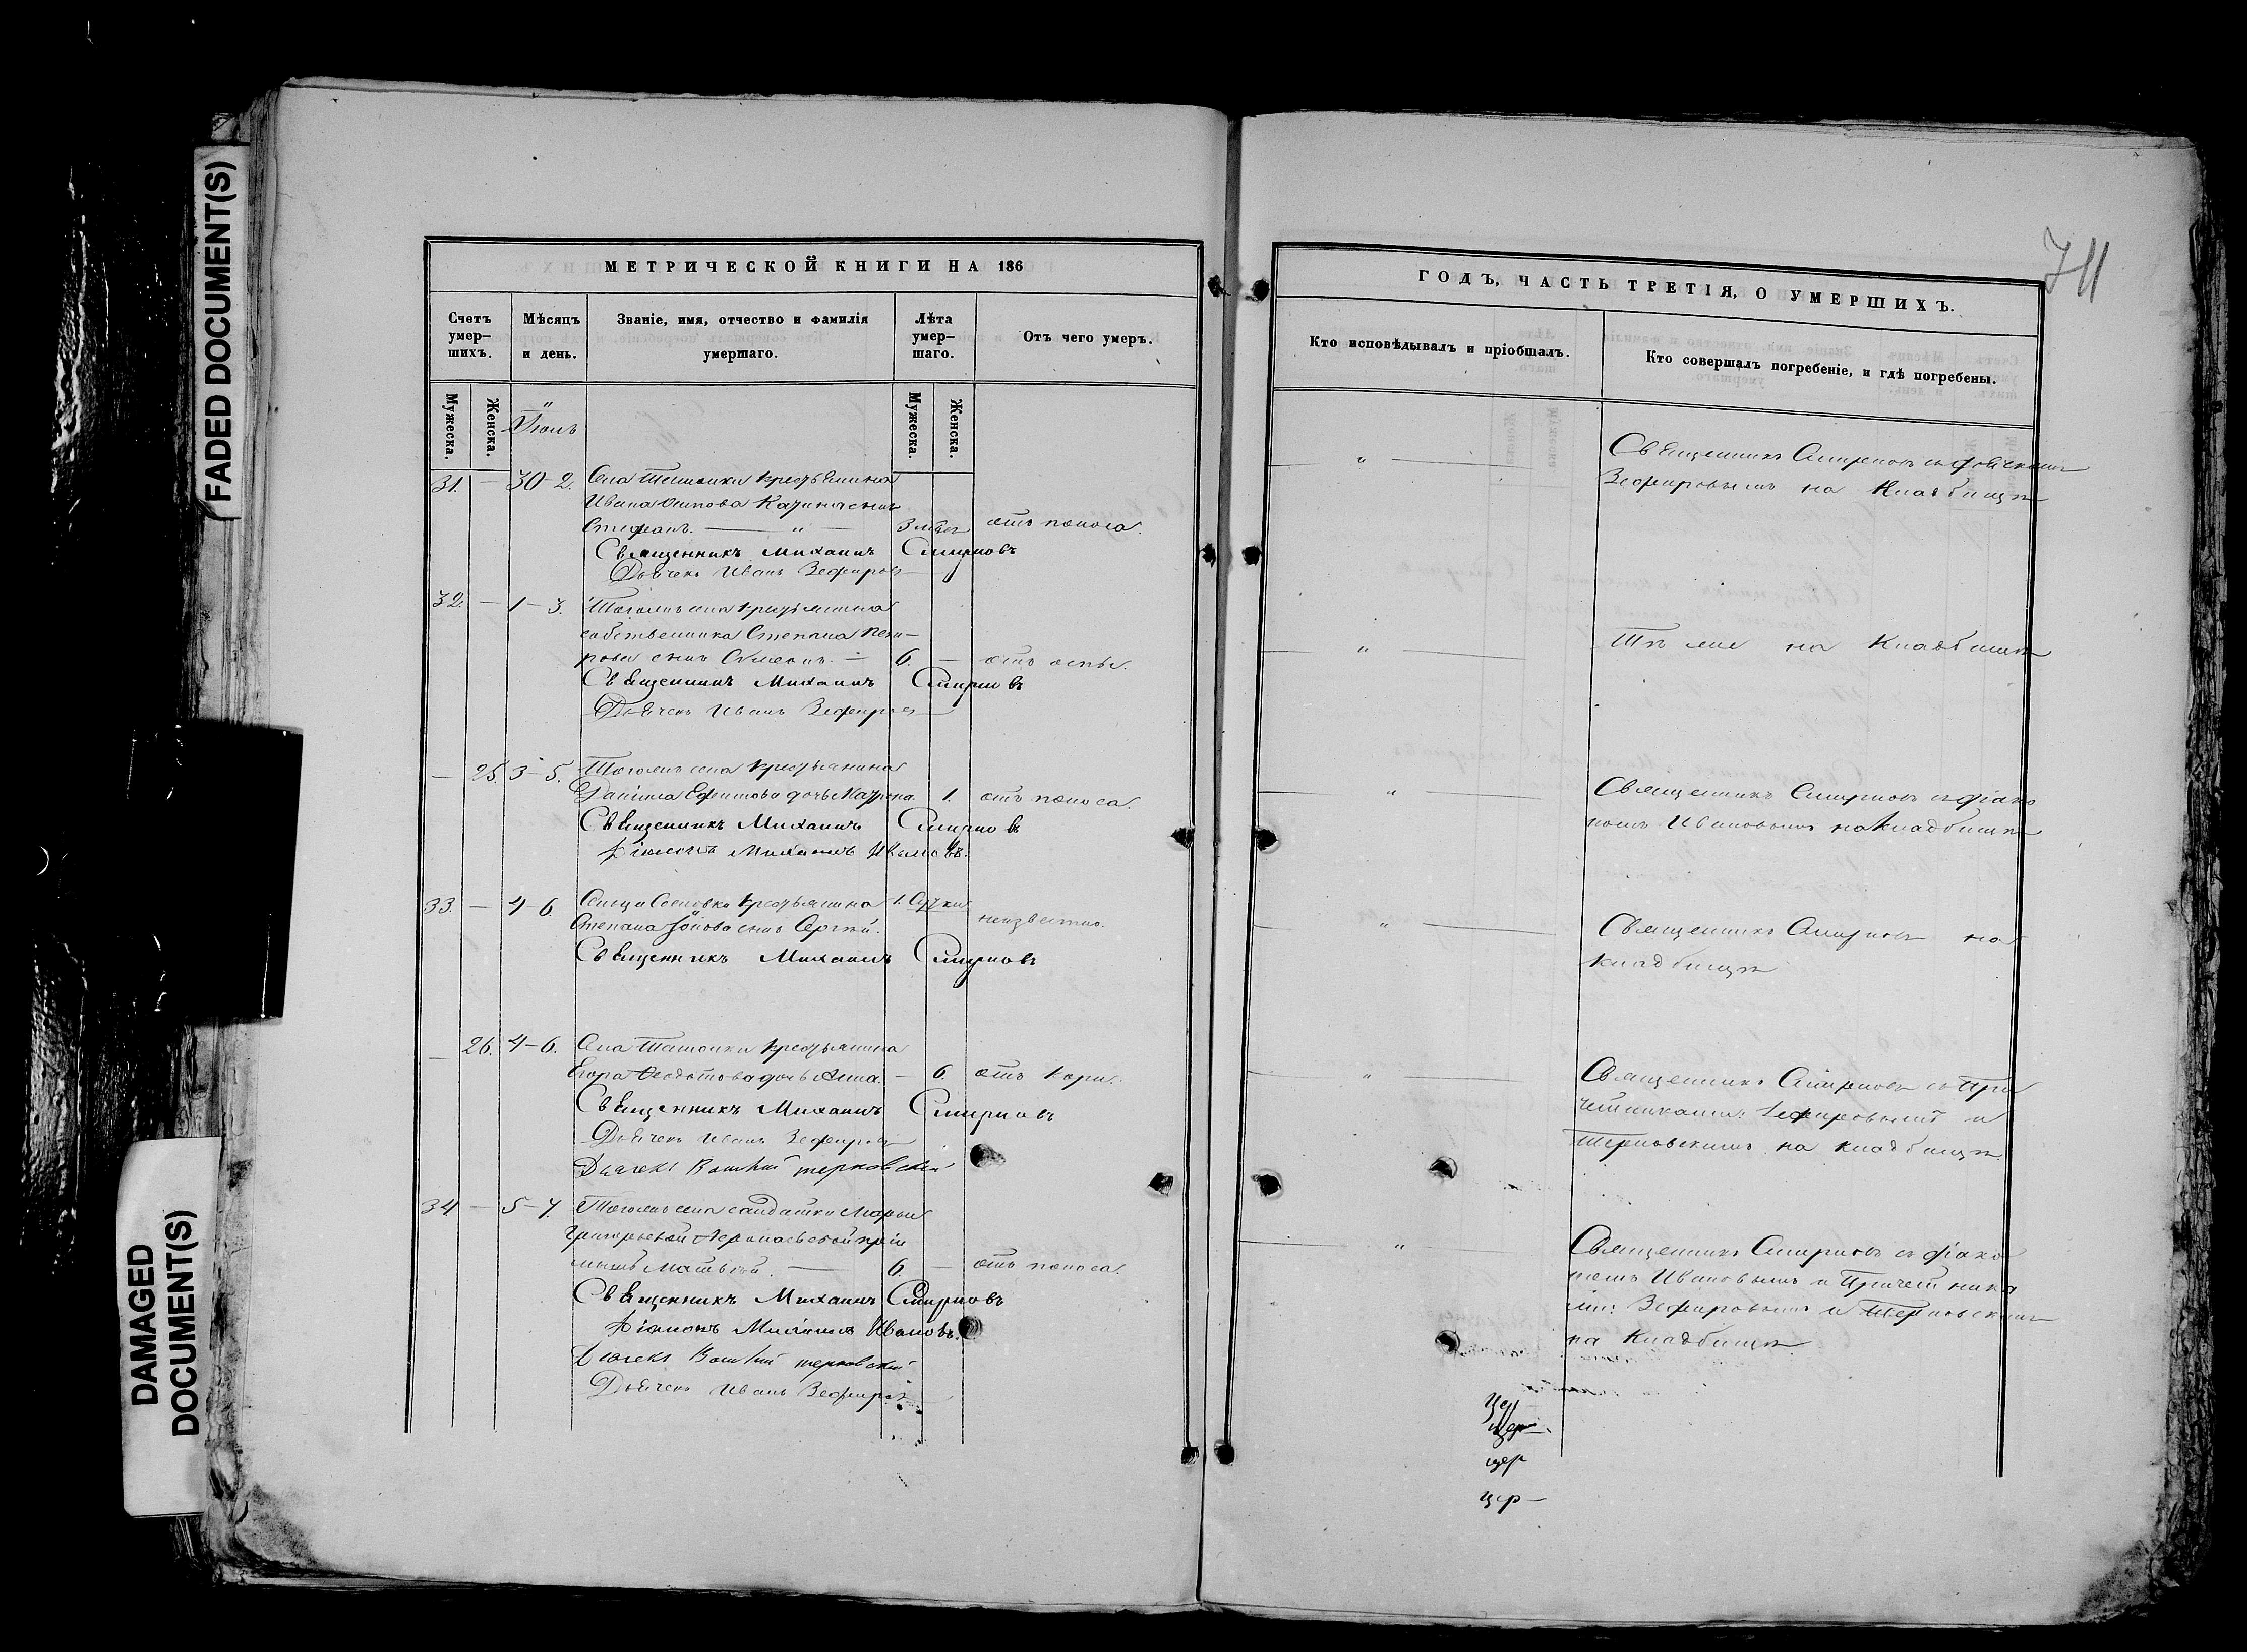 FADED DOCUMENT(S)
DAMAGED
DOCUMENT(S)
МЕТРИЧЕСКОЙ КНИГИ НА 186
Счетъ умер–шихъ.
Мѣсяцъ и день.
Званіе, имя, отчество и фамилія умершаго.
Лѣта умер–шаго.
Отъ чего умеръ.
Мужеска.
Женска.
Мужеска.
Женска.
31. — 30–2. Села крестьянина
Ивана сынъ
Стефанъ. — " — отъ поноса.
Священникъ Михаилъ Смирновъ
Дьячекъ Иванъ Зефировъ
32. — 1–3. Тогожъ села крестьянина
собственника Степана
сынъ — 6. — отъ оспы.
Священникъ Михаилъ Смирновъ
Дьячекъ Иванъ Зефировъ
— 25. 3–5. Тогожъ села крестьянина
Даніила Ефимова дочь 1. отъ поноса.
Священникъ Михаилъ Смирновъ
Діаконъ Михаилъ Ивановъ.
33. — 4–6. крестьянина
Степана сынъ Сергѣй. неизвестно.
Священникъ Михаилъ Смирновъ
— 26. 4–6. Села крестьянина
Егора Ѳедотова дочь Анна. — 6. отъ кори.
Священникъ Михаилъ Смирновъ
Дьячекъ Иванъ Зефировъ
Дьячекъ терновскій
34 — 5–7. Тогожъ села солдатки Марьи
Григорьевой
Матвѣй. — 6. — отъ поноса.
Священникъ Михаилъ Смирновъ
Діаконъ Михаилъ Ивановъ.
Дьячекъ терновскій
Дьячекъ Иванъ Зефировъ
711
ГОДЪ, ЧАСТЬ ТРЕТІЯ, О УМЕРШИХЪ.
Кто исповѣдывалъ и пріобщалъ.
Кто совершалъ погребеніе, и гдѣ погребены.
— " — Священникъ Смирновъ съ дьячкомъ
Зефировымъ на кладбищѣ
— " — Тѣ же на кладбищѣ
— " — Священникъ Смирновъ съ діако
номъ Ивановымъ на кладбищѣ
— " — Священникъ Смирновъ на
кладбищѣ
— " — Священникъ Смирновъ съ при
четниками: Зефировымъ и
Терновскимъ на кладбищѣ.
— " — Священникъ Смирновъ съ діако
номъ Ивановымъ и причетника
ми: Зефировымъ и Терновскимъ
на кладбищѣ.
цер
цер